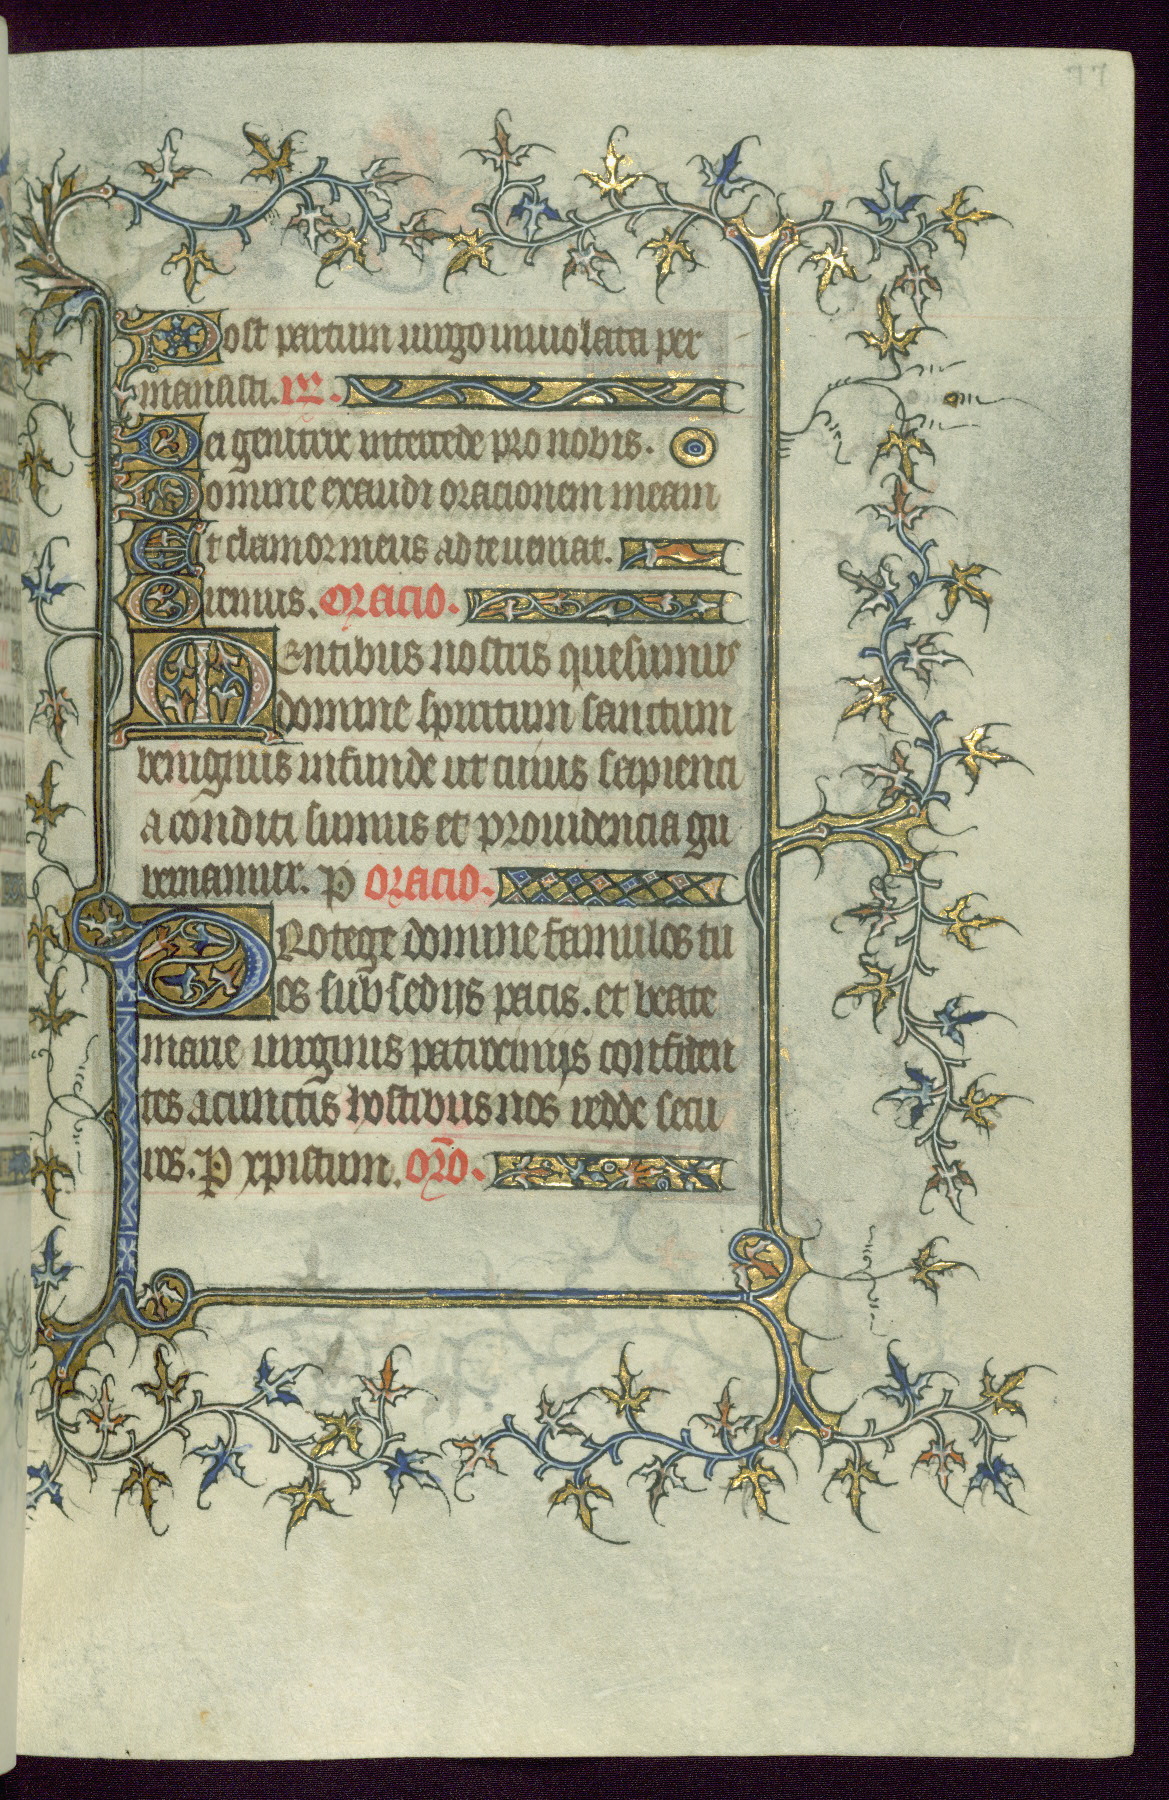 Post partum uirgo inuiolata per
mansisti. R̃.
Dei genitrix intercede pro nobis.
Domine exaudi oracionem meam
Et clamor meus ad te ueniat.
Oremus. Oracio.
Mentibus nostris quesumus
domine spiritum sanctum
benignus infunde ut cuius sapienci
a conditi sumus et prouidencia gu
bernamur. P Oracio.
Protege domine famulos tu
os sub sediis pacis. et beate
marie uirginis patrociniis confiden
tes a cunctis hostibus nos redde secu
ros. P xpistum. Orõ.